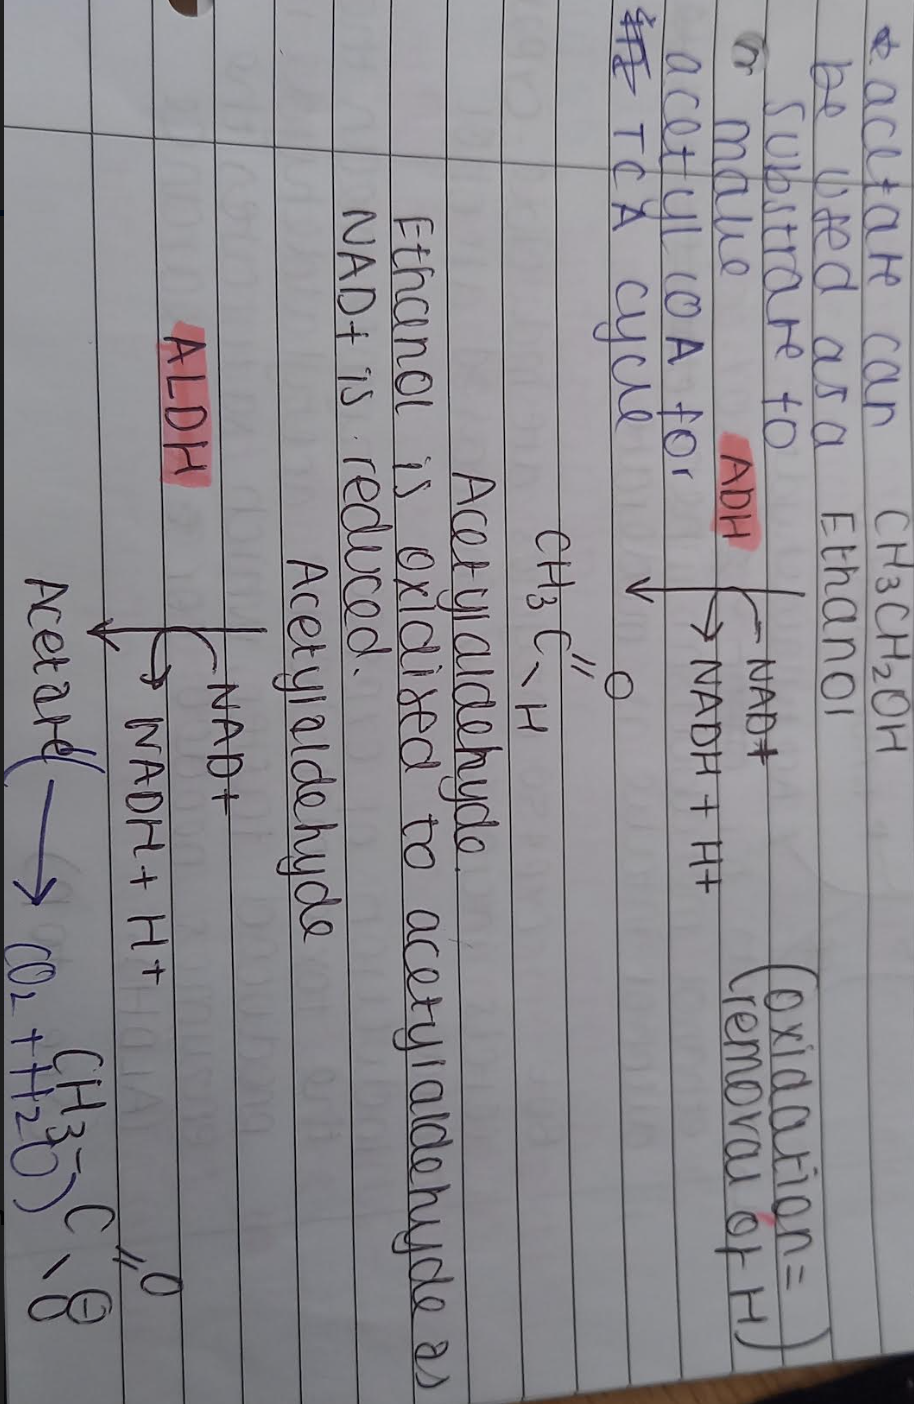 * acetate can
be used as a
substrate to
or make
acetyl coA for
TCA cycle
CH3CH2OH
Ethanol
ADH
NAD+
NADH + H+
(oxidation =
removal of H)
O
CH3 C H
Acetylaldehyde.
Ethanol is oxidised to acetylaldehyde as
NAD+ is reduced.
Acetylaldehyde
ALDH
NAD+
NADH + H+
Acetate ( → CO2 + H2O)
O
CH3 - C
O⊖